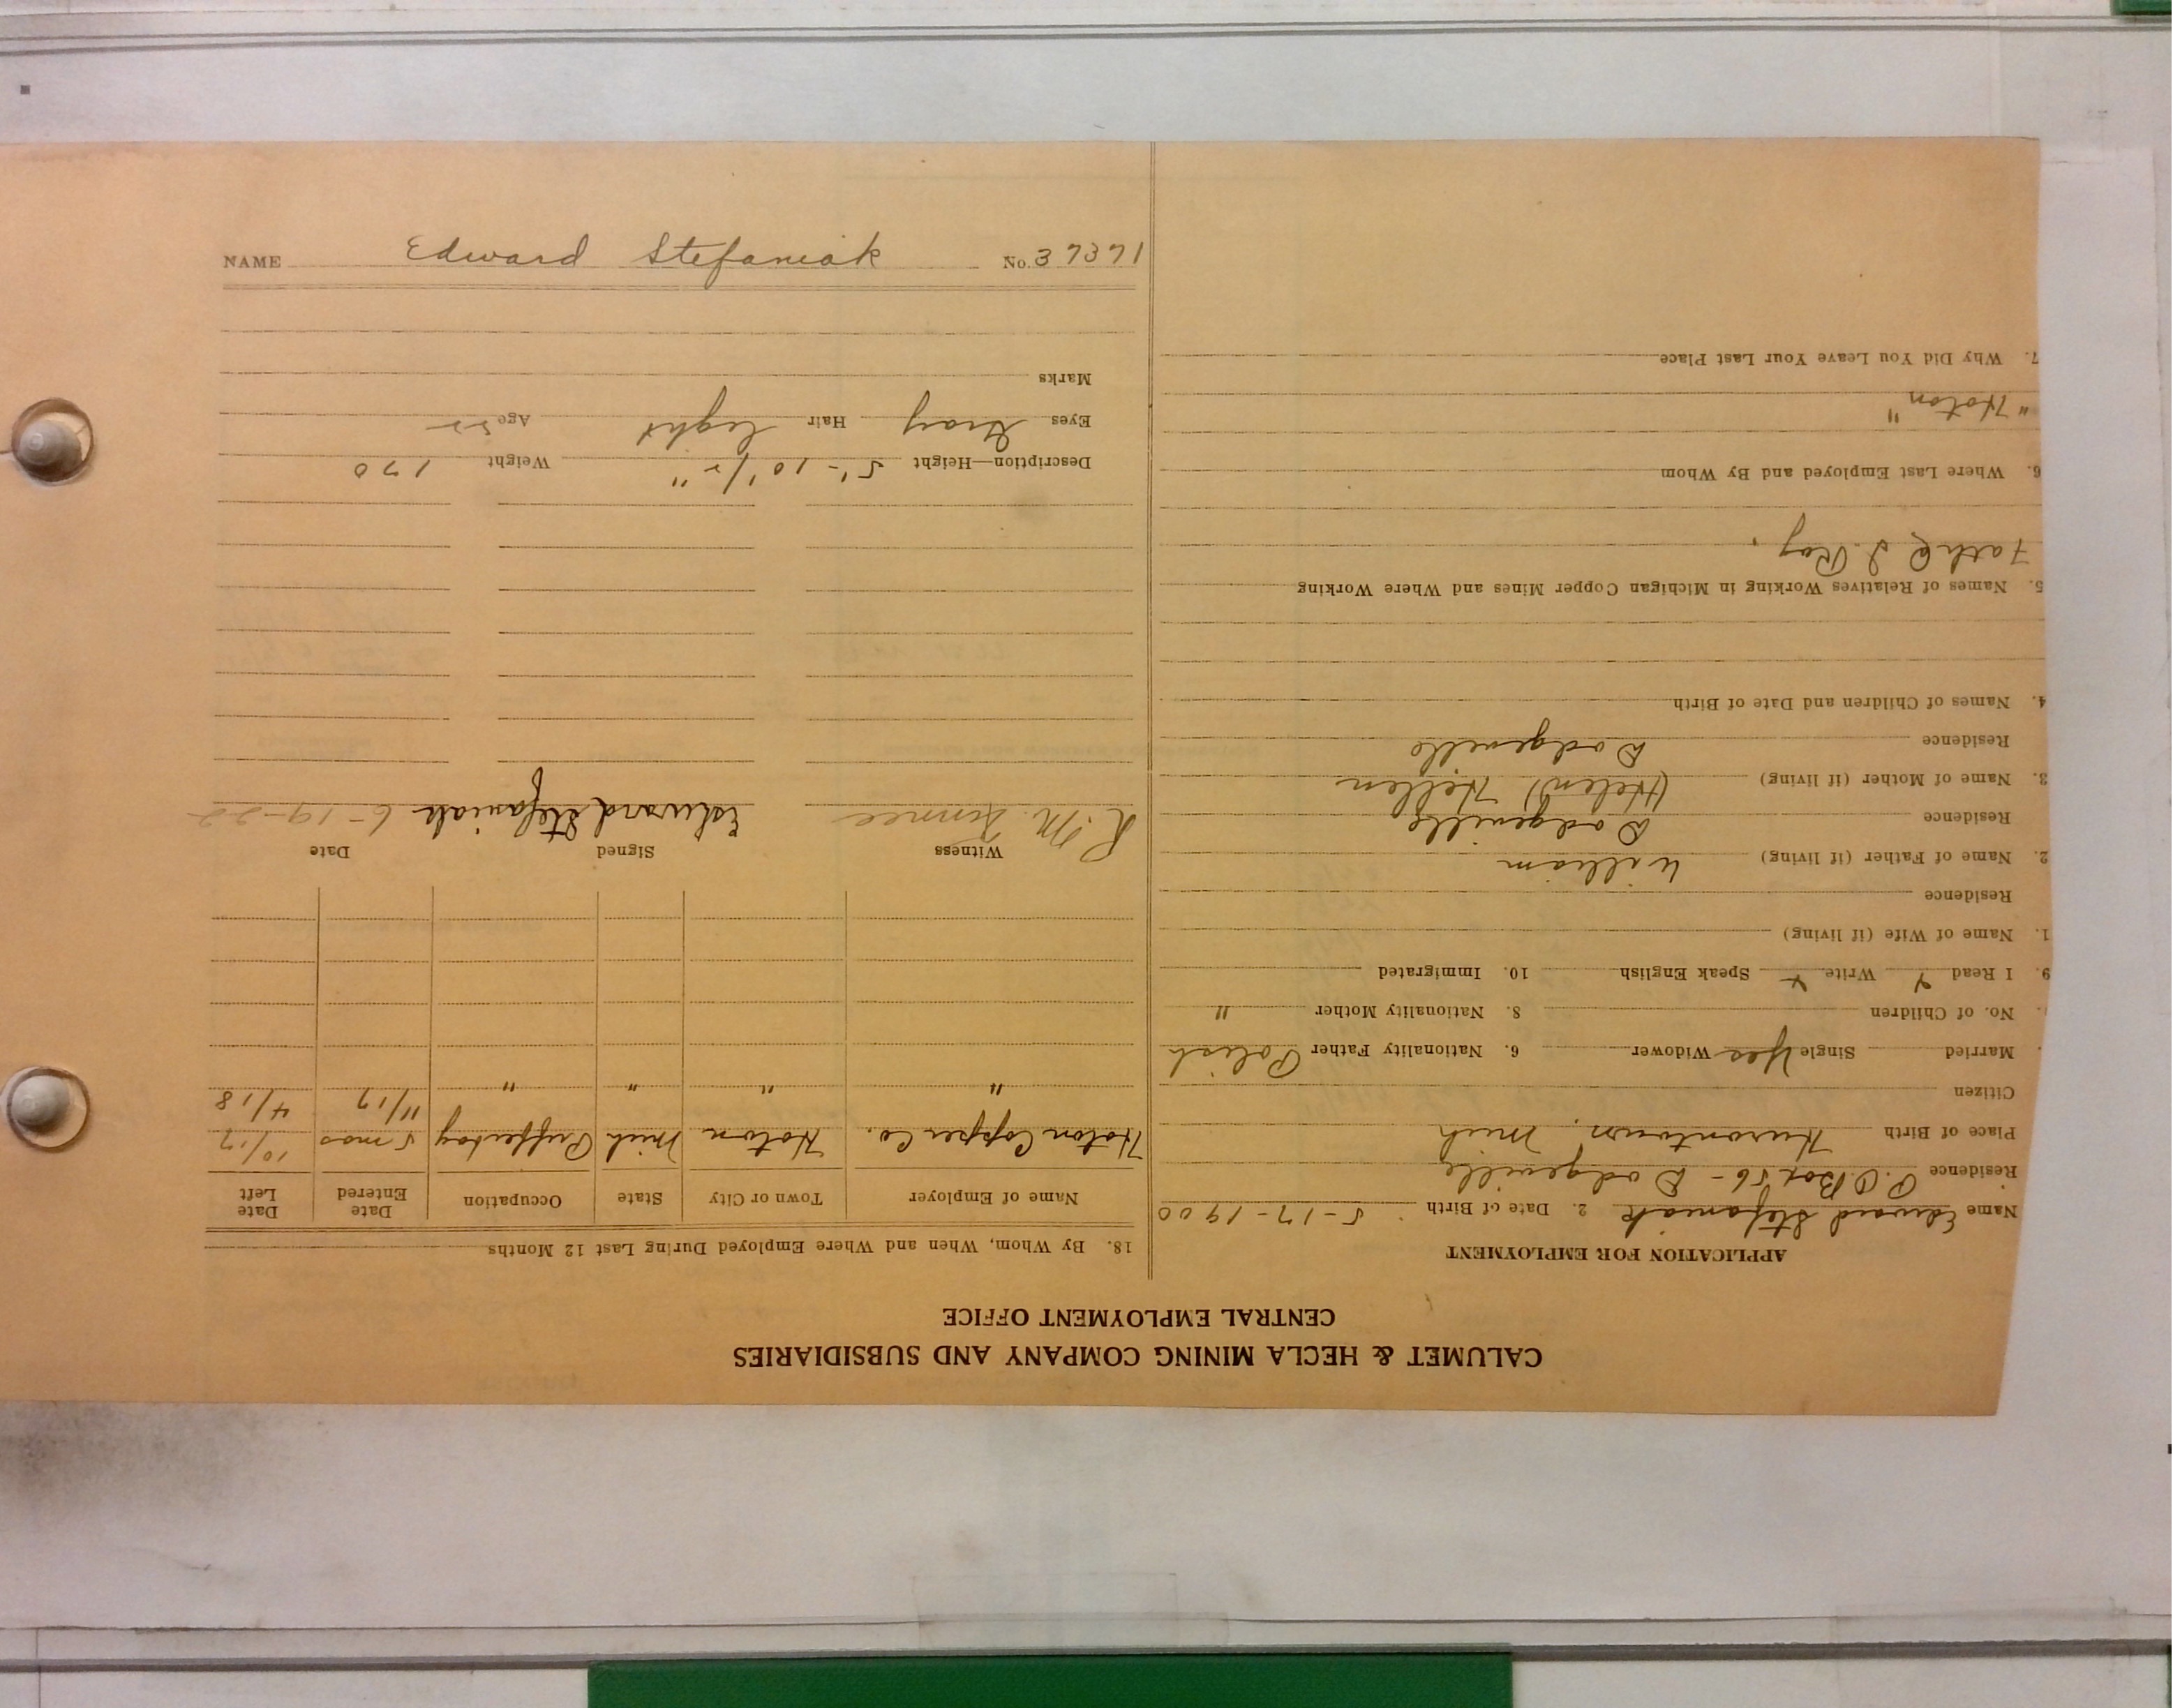 CALUMET & HECLA MINING COMPANY AND SUBSIDIARIES
CENTRAL EMPLOYMENT OFFICE
APPLICATION FOR EMPLOYMENT
Name Edward Stefaniak 2. Date of Birth 5-17-1900
Residence P.O Box 56 - Dodgeville
Place of Birth Hurontown, Mich
Citizen
Married Single Yes Widower 6. Nationality Father Polish
No. of Children 8. Nationality Mother "
9. I Read Write Speak English 10. Immigrated
1. Name of Wife (if living)
Residence
2. Name of Father (if living) William
Residence Dodgeville
3. Name of Mother (if living) (Helen) Hellen
Residence Dodgeville
4. Names of Children and Date of Birth
5. Names of Relatives Working in Michigan Copper Mines and Where Working
6. Where Last Employed and By Whom
"Hoton"
7. Why Did You Leave Your Last Place
18. By Whom, When and Where Employed During Last 12 Months
Name of Employer Town or City State Occupation Date Entered Date Left
Hoton Copper Co. Hoton Mich Puffer boy 5 mos 10/17
" " " " 11/17 4/18
Witness Signed Date
Edward Stefaniak 6-19-22
Description—Height 5'-10 1/2" Weight 170
Eyes Gray Hair light Age 22
Marks
NAME Edward Stefaniak No. 37371